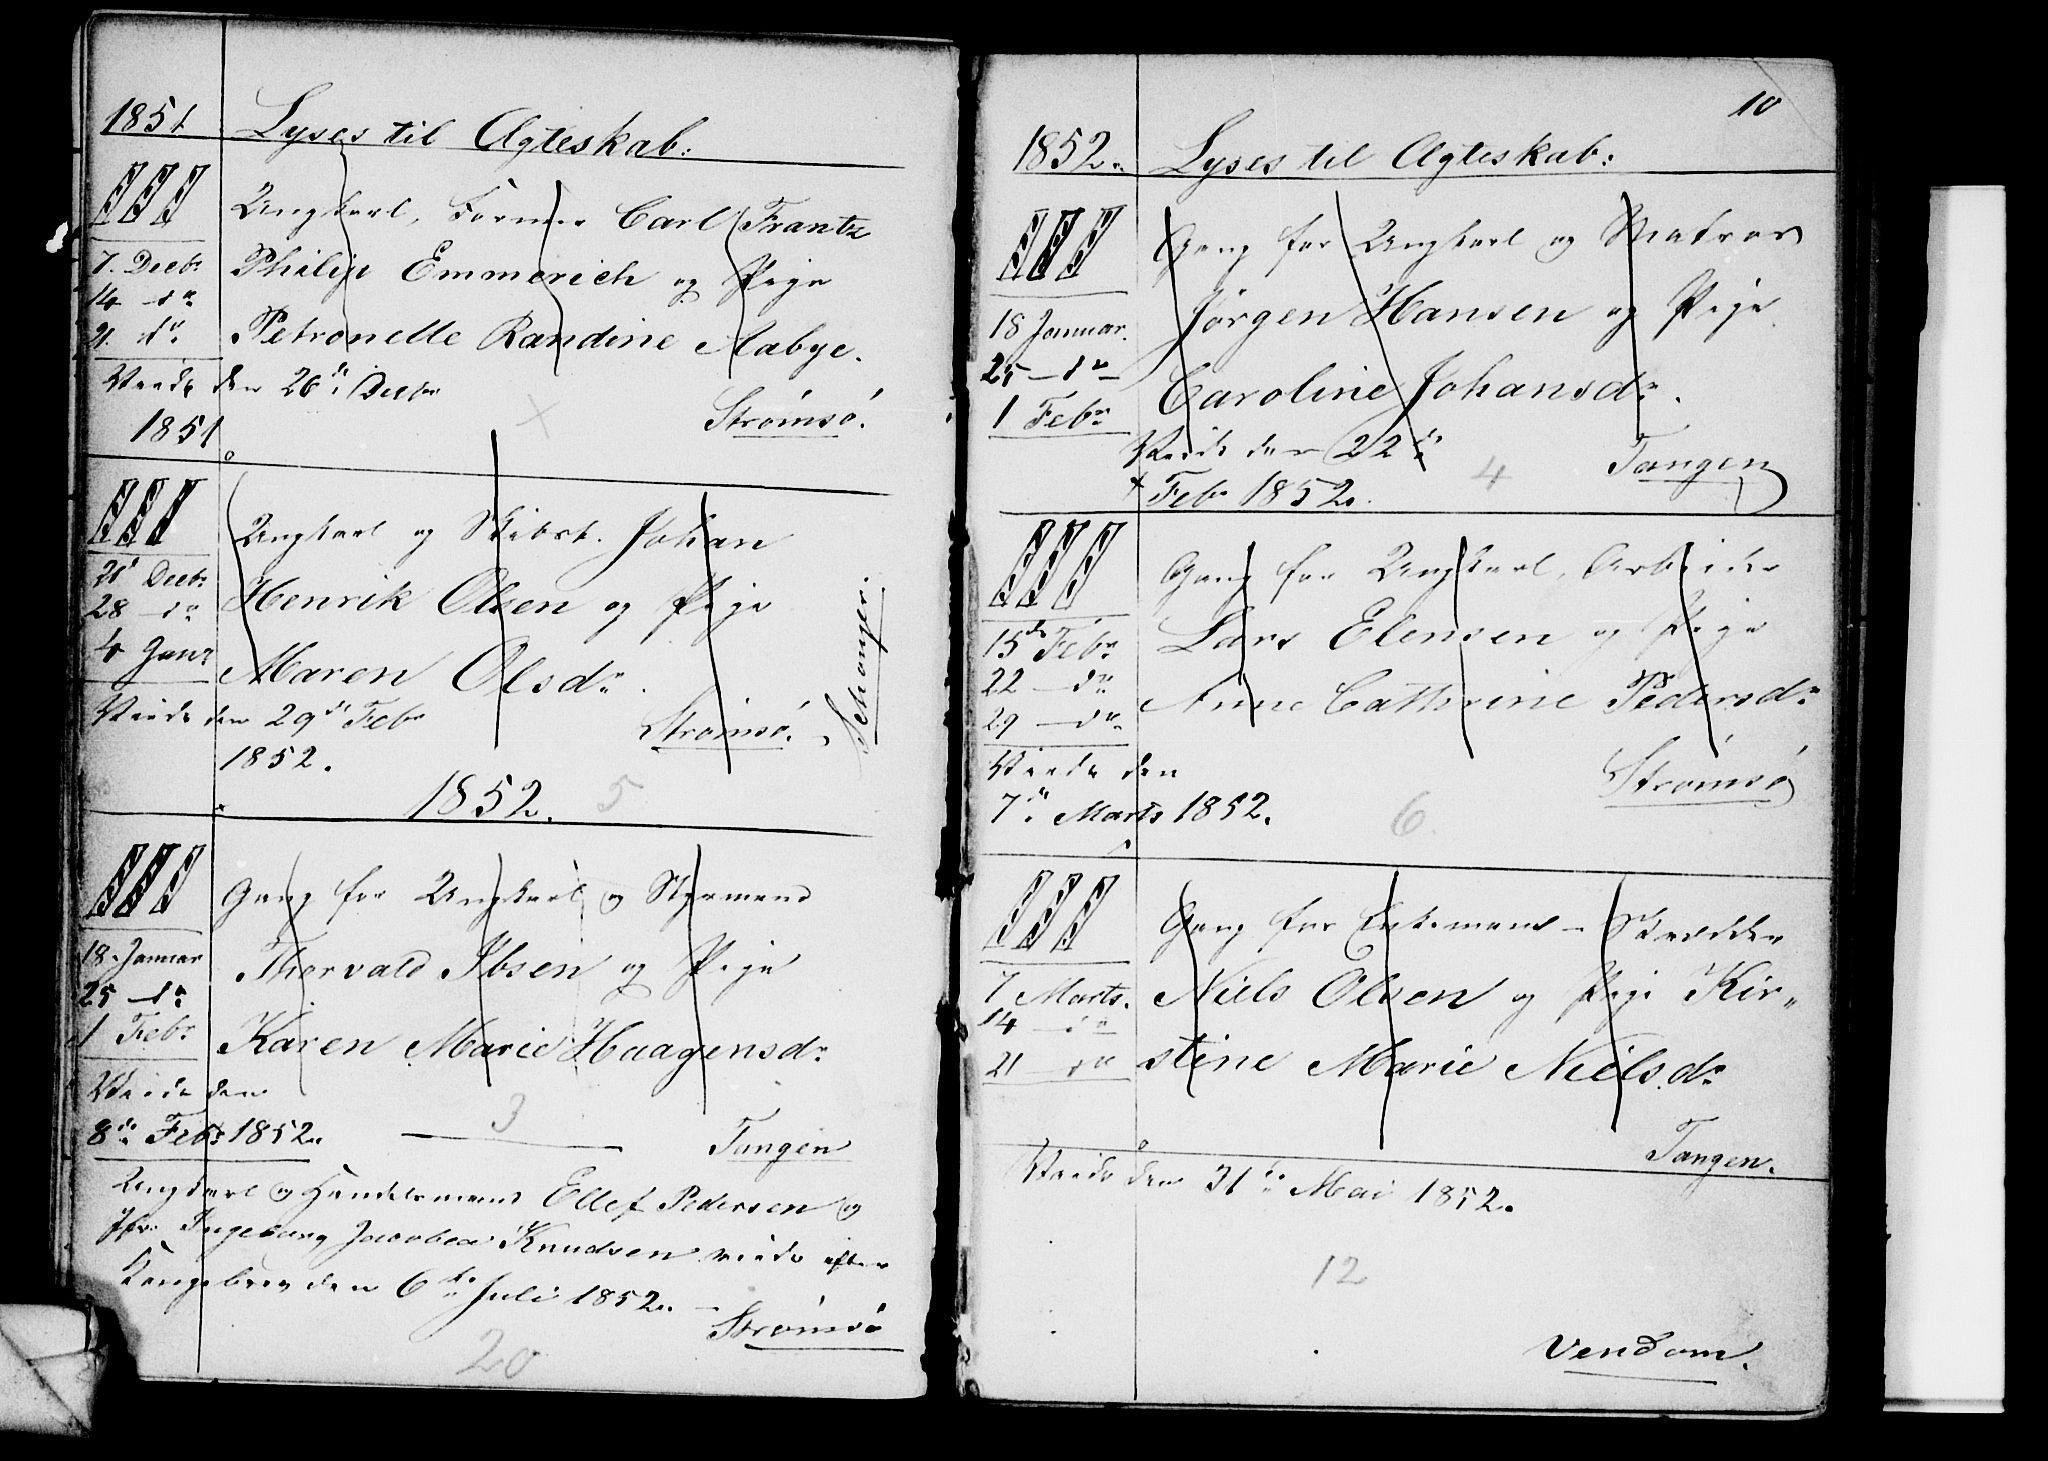 1851 Lyses til Ægteskab:
III Ungkarl, Former Carl Frantz
7. Decbr Philip Emmerich og Pige
14 do
21. do Petronelle Randine Aabye.
Viede den 26de Decbr
Strømsö.
1851
III Ungkarl og Skibst. Johan
21 Decbr
28 do Henrik Olsen og Pige
4 Janr Maren Olsdr.
Schonger.
Viede den 29de Febr Strømsö.
1852.
1852. 5
III Gang for Ungkarl og Styrmand
18. Januar Thorvald Ibsen og Pige
25 do
1 Febr Karen Marie Haagensdr
Viede den
3
8de Febr 1852. Tangen
Ungkarl og Handelsmand Ellef Pedersen og
Jfr: Ingeborg Jacobea Knudsen viede efter
Kongebrev den 6te Juli 1852.
Strømsö
20
10
1852. Lyses til Ægteskab:
III Gang for Ungkarl og Matros
18 Januar. Jørgen Hansen og Pige
25 do
1 Febr Caroline Johansdr.
Viede den 22de 4 Tangen
Febr 1852.
III Gang for Ungkarl, Arbeider
15de Febr Lars Elensen og Pige
22 do
29 do Anne Cathrine Pedersdr
Viede den Strømsö
7de Marts 1852. 6.
III Gang for Enkemand Skrædder
7 Marts. Niels Olsen og Pige Kir-
14 do
21 do stine Marie Nielsdr
Tangen.
Viede den 31te Mai 1852.
12
Vendom.